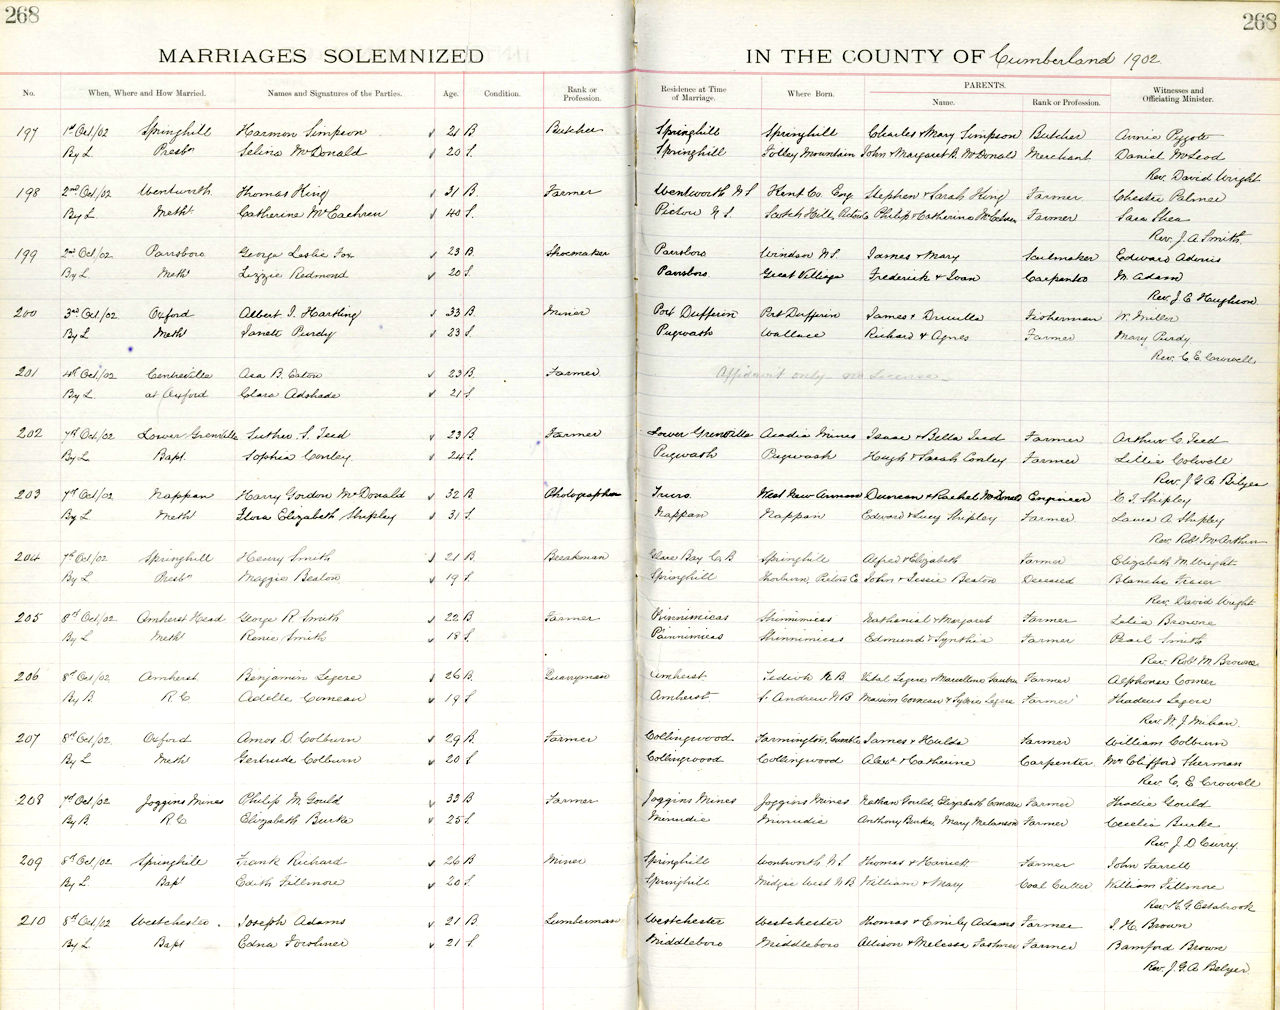 268
268
MARRIAGES SOLEMNIZED IN THE COUNTY OF Cumberland 1902
No. When, Where and How Married. Names and Signatures of the Parties. Age. Condition. Rank or Profession. Residence at Time of Marriage. Where Born. PARENTS. Name. Rank or Profession. Witnesses and Officiating Minister.
197 1st Oct/02 Springhill Harmon Simpson 21 B. Butcher Springhill Springhill Charles & Mary Simpson Butcher Annie
By L Presbn Selina McDonald 20 S. Springhill Folley Mountain John & Margaret R. McDonald Merchant Daniel McLeod
Rev. David Wright
198 2nd Oct/02 Wentworth Thomas King 31 B. Farmer Wentworth N S Kent Co. Eng. Stephen & Sarah King Farmer Chester Palmer
By L. Meth Catherine McEachren 40 S. Pictou N S. Scotch Hill, Philip & Catherine Farmer Sara Shea
Rev. J. A. Smith
199 2nd Oct/02 Parrsboro George Leslie Fox 23 B. Shoemaker Parrsboro Windsor N S James & Mary Sailmaker Edward
By L. Meth Lizzie Redmond 20 S. Parrsboro Great Village Frederick & Carpenter M. Adam
Rev. J. E. Hughson
200 3rd Oct/02 Oxford Albert I. Hartling 33 B. Miner Port Dufferin Port Dufferin James & Drucilla Fisherman W. Miller
By L Meth Janett Purdy 23 S. Pugwash Wallace Richard & Agnes Farmer Mary Purdy
Rev. C. E. Crowell
201 4th Oct/02 Centreville Asa B. Eaton 23 B. Farmer Affidavit only no License
By L. at Oxford Clara Adshade 21 S.
202 7th Oct/02 Lower Grenville Luther S. Teed 23 B. Farmer Lower Grenville Acadia Mines Isaac & Bella Teed Farmer Arthur C. Teed
By L. Bapt. Sophia Conley 24 S. Pugwash Pugwash Hugh & Sarah Conley Farmer Lillie Colwell
Rev. J. G. A. Belyea
203 7th Oct/02 Nappan Harry Gordon McDonald 32 B Photographer Truro West New Annan Duncan & Rachel McDonald Engineer C. I. Shipley
By L Meth Flora Elizabeth Shipley 31 S. Nappan Nappan Edward & Lucy Shipley Farmer Laura A. Shipley
Rev. Robt McArthur
204 7th Oct/02 Springhill Henry Smith 21 B. Breakman Glace Bay C. B Springhill Alfred & Elizabeth Farmer Elizabeth M. Wright
By L Presbn Maggie Beaton 19 S. Springhill Thorburn, Pictou Co John & Jessie Beaton Deceased Blanche Fraser
Rev. David Wright
205 8th Oct/02 Amherst Head George R Smith 22 B Farmer Shinnimicas Shinnimicas Nathanial & Margaret Farmer Lelia Browne
By L Meth Renie Smith 18 S. Shinnimicas Shinnimicas Edmund & Synthia Farmer Pearl Smith
Rev. Robt M. Browne
206 8th Oct/02 Amherst Benjamin Legere 26 B. Quarryman Amherst N. B Vital Legere & Marcelline Farmer Alphonse Comer
By B. R. C Adelle Comeau 19 S Amherst St Andrew N B Maxim Comeau & Legere Farmer Thadeus Legere
Rev. W. J. Mihan
207 8th Oct/02 Oxford Amos D. Colburn 29 B. Farmer Collingwood Farmington, James & Hulda Farmer William Colburn
By L Meth Gertrude Colburn 20 S. Collingwood Collingwood Alexr & Catherine Carpenter Mrs Clifford Sherman
Rev. C. E Crowell
208 7th Oct/02 Joggins Mines Philip M. Gould 32 B. Farmer Joggins Mines Joggins Mines Nathan Gould, Elizabeth Comeau Farmer Thadie Gould
By B. R. C Elizabeth Burke 25 S. Minudie Minudie Anthony Burke, Mary Melanson Farmer Cecelia Burke
Rev. J. D. Curry
209 8th Oct/02 Springhill Frank Richard 26 B Miner Springhill Wentworth N S Thomas & Harriett Farmer John Farrell
By L. Bapt Edith Fillmore 20 S. Springhill Midgie West N B William & Mary Coal Cutter William Fillmore
Rev. H. G. Estabrook
210 8th Oct/02 Westchester. Joseph Adams 21 B. Lumberman Westchester Westchester Thomas & Emily Adams Farmer I. H. Brown
By L. Bapt Edna 21 S. Middleboro Middleboro Allison & Melessa Farmer Bamford Brown
Rev. J. G. A. Belyea